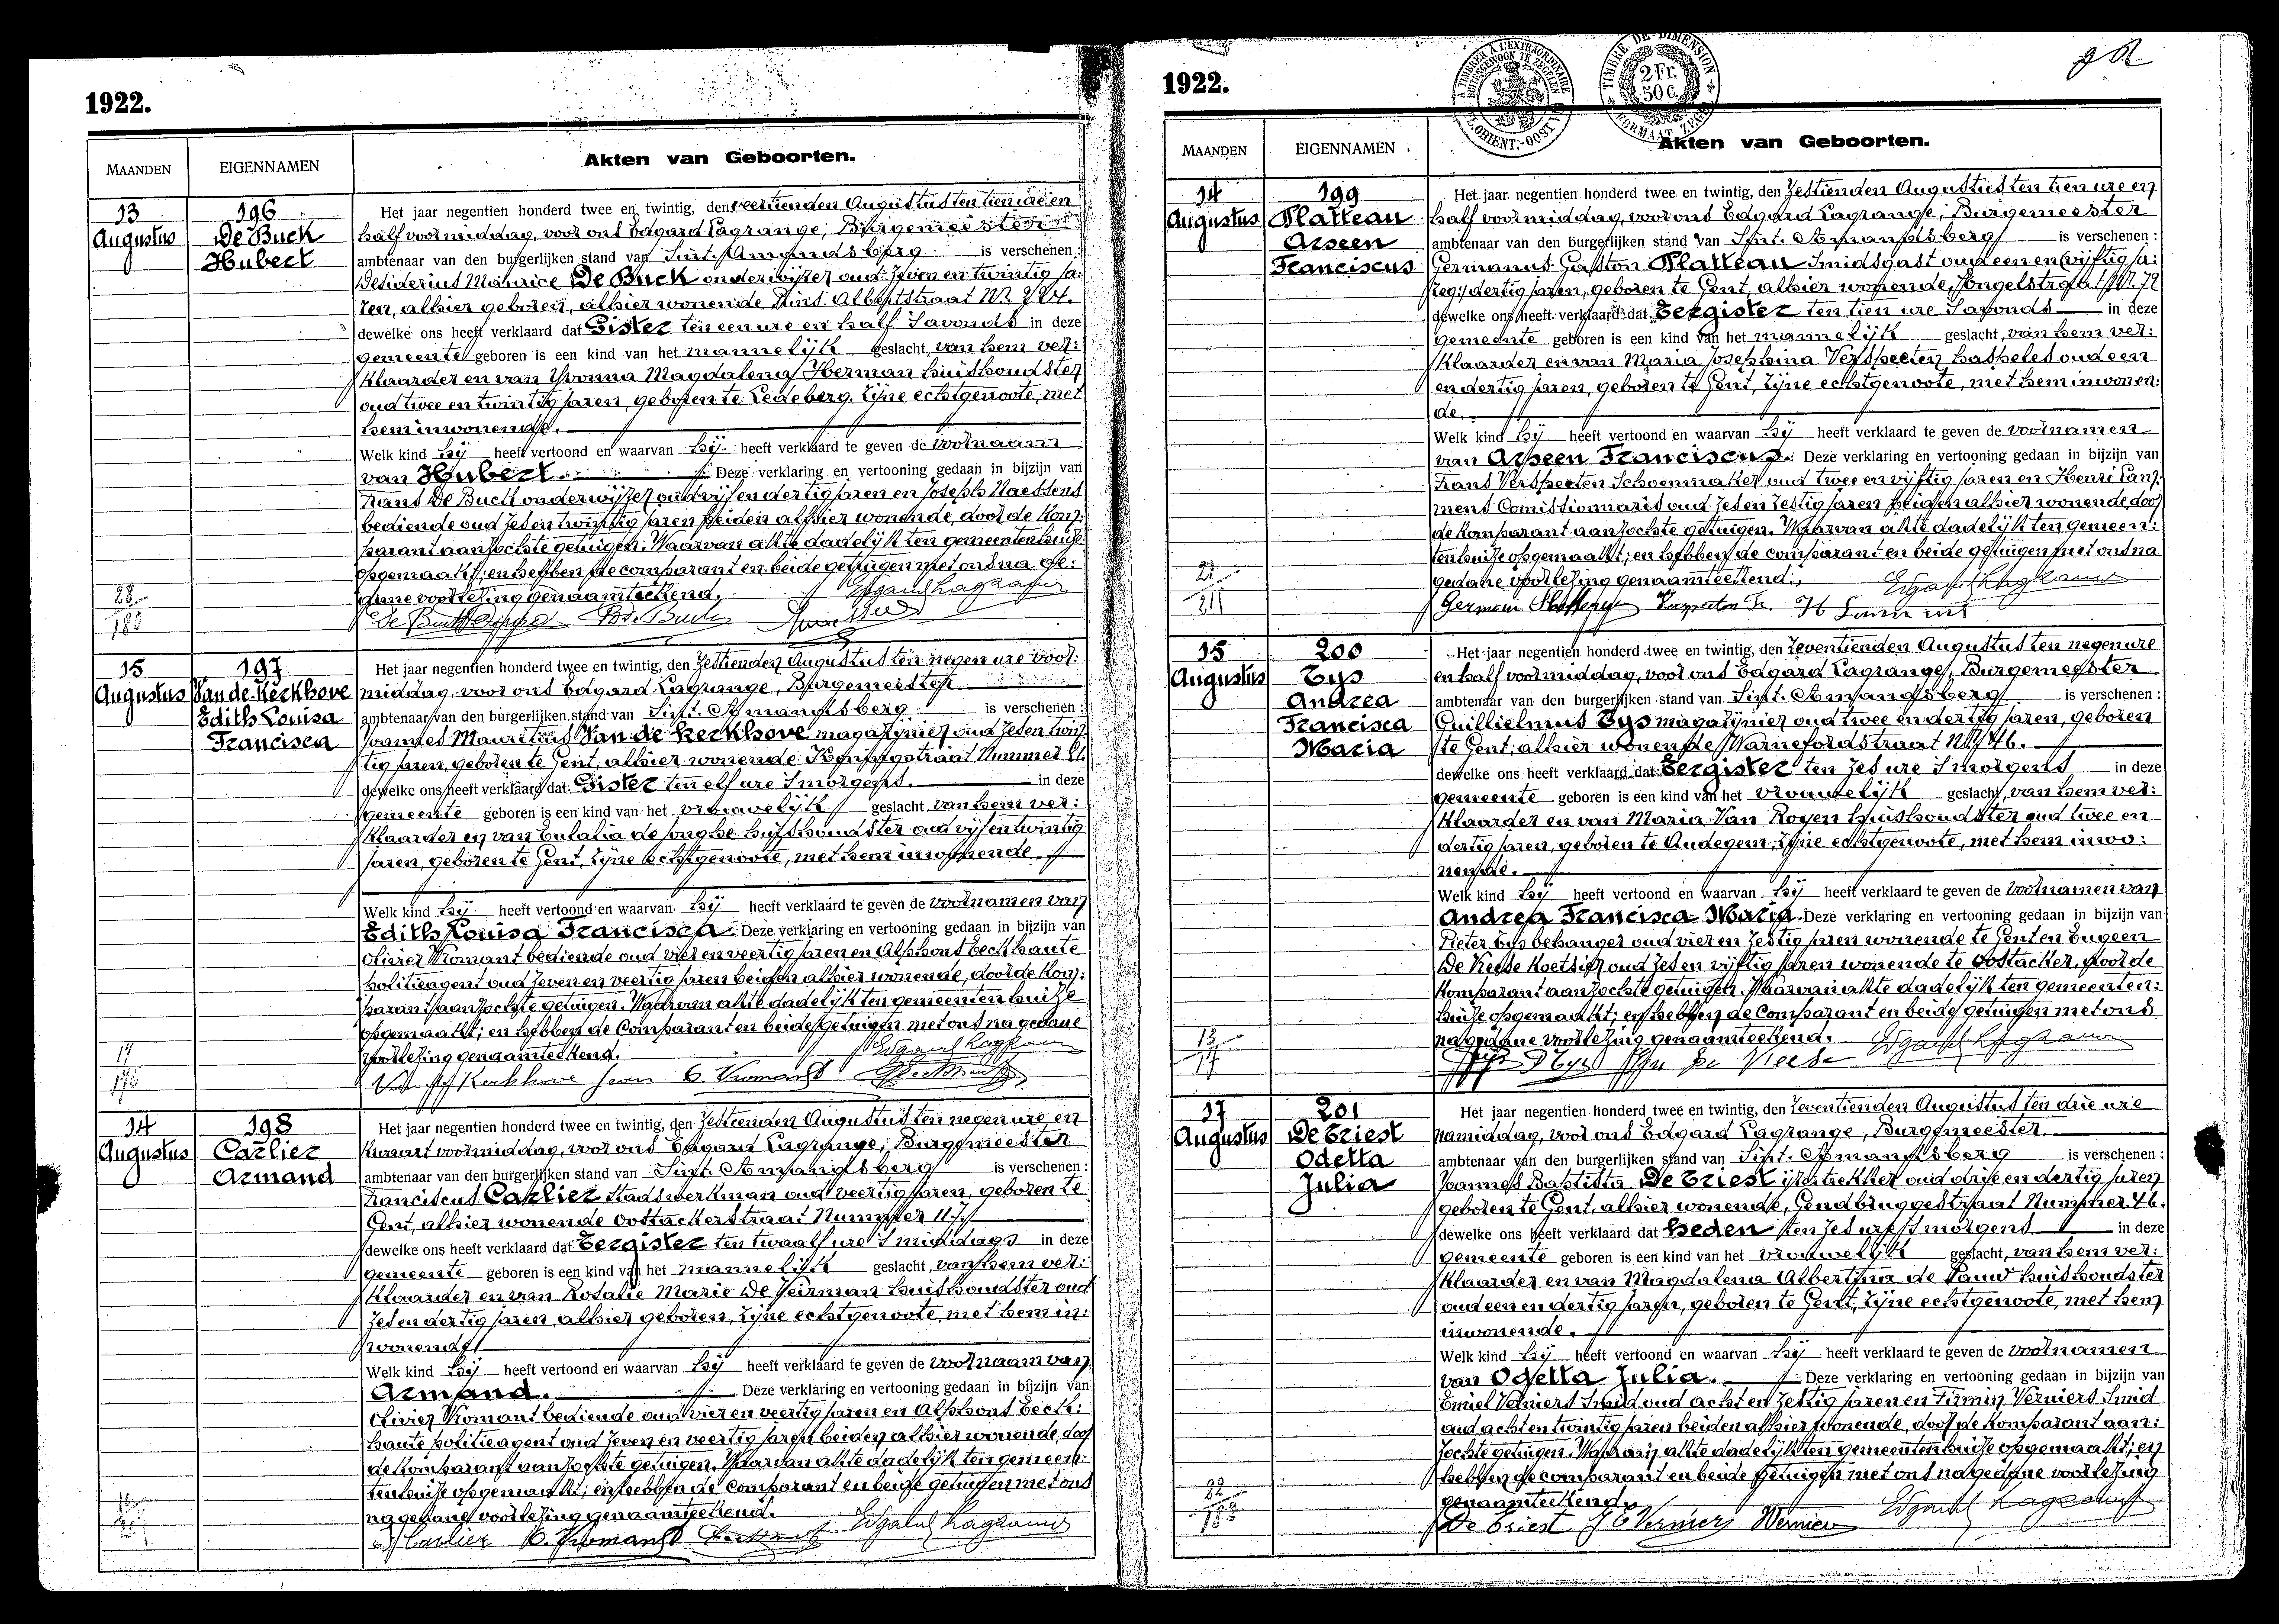 1922.
MAANDEN
EIGENNAMEN
Akten van Geboorten.
13
Augustus
196
De Buck
Hubert
Het jaar negentien honderd twee en twintig, den veertienden Augustus ten tien ure en
half voormiddag, voor ons Edgard Lagrange, Burgemeester
ambtenaar van den burgerlijken stand van Sint-Amandsberg is verschenen :
Desiderius Maurice De Buck onderwijzer oud zeven en twintig ja:
ren, alhier geboren, alhier wonende Prins Albertstraat Nr.
dewelke ons heeft verklaard dat Gister ten een ure en half Savonds in deze
gemeente geboren is een kind van het mannelijk geslacht, van hem ver:
klaarder en van Yvonna Magdalena Herman huishoudster
oud twee en twintig jaren, geboren te Ledeberg, zijne echtgenoote, met
hem inwonende.
Welk kind hij heeft vertoond en waarvan hij heeft verklaard te geven de voornaam
van Hubert. Deze verklaring en vertooning gedaan in bijzijn van
Frans De Buck onderwijzer oud vijf en dertig jaren en Joseph Naessens
bediende oud zes en twintig jaren beiden alhier wonende, door de Kom:
parant aanzochte getuigen. Waarvan akte dadelijk ten gemeentenhuize
opgemaakt; en hebben de comparant en beide getuigen met ons na ge:
dane voorlezing genaamteekend.
28
15
Augustus
197
Van de Kerkhove
Edith Louisa
Francisca
Het jaar negentien honderd twee en twintig, den Zestienden Augustus ten negen ure voor:
middag, voor ons Edgard Lagrange, Burgemeester
ambtenaar van den burgerlijken stand van Sint-Amandsberg is verschenen :
Joannes Mauritius Van de Kerkhove magazijnier oud zes en twin:
tig jaren, geboren te Gent, alhier wonende Koningstraat Nummer
dewelke ons heeft verklaard dat Gister ten elf ure Smorgens. in deze
gemeente geboren is een kind van het vrouwelijk geslacht, van hem ver:
klaarder en van Eulalia de Jonghe huishoudster oud vijf en twintig
jaren, geboren te Gent, zijne echtgenoote, met hem inwonende.
Welk kind hij heeft vertoond en waarvan hij heeft verklaard te geven de voornamen van
Edith Louisa Francisca. Deze verklaring en vertooning gedaan in bijzijn van
Olivier Vromant bediende oud vier en veertig jaren en Alphons Beckhaute
politieagent oud zeven en veertig jaren beiden alhier wonende, door de Kom:
parant aanzochte getuigen. Waarvan akte dadelijk ten gemeentenhuize
opgemaakt; en hebben de Comparant en beide getuigen met ons na gedane
voorlezing genaamteekend.
14
Augustus
198
Carlier
Armand
Het jaar negentien honderd twee en twintig, den Zestienden Augustus ten negen ure en
Kwaart voormiddag, voor ons Edgard Lagrange, Burgemeester
ambtenaar van den burgerlijken stand van Sint-Amandsberg is verschenen :
Franciscus Carlier Stadswerkman oud veertig jaren, geboren te
Gent, alhier wonende Oostackerstraat Nummer 117.
dewelke ons heeft verklaard dat Eergister ten twaalf ure Smiddags in deze
gemeente geboren is een kind van het mannelijk geslacht, van hem ver:
klaarder en van Rosalie Marie De Veirman huishoudster oud
zes en dertig jaren, alhier geboren, zijne echtgenoote, met hem in:
wonende.
Welk kind hij heeft vertoond en waarvan hij heeft verklaard te geven de voornaam van
Armand. Deze verklaring en vertooning gedaan in bijzijn van
Olivier Vromant bediende oud vier en veertig jaren en Alphons Beck:
haute politieagent oud zeven en veertig jaren beiden alhier wonende, door
de Komparant aanzochte getuigen. Waarvan akte dadelijk ten gemeen:
tenhuize opgemaakt; en hebben de comparant en beide getuigen met ons
na gedane voorlezing genaamteekend.
1922.
TIMBRE DE DIMENSION
2 Fr.
50 C.
FORMAAT ZEGEL
MAANDEN
EIGENNAMEN
Akten van Geboorten.
14
Augustus
199
Platteau
Arseen
Franciscus
Het jaar negentien honderd twee en twintig, den Zestienden Augustus ten tien ure en
half voormiddag, voor ons Edgard Lagrange, Burgemeester
ambtenaar van den burgerlijken stand van Sint-Amandsberg is verschenen :
Germanus Gaston Platteau Smidsgast oud een en
dertig jaren, geboren te Gent, alhier wonende, Engelstraat Nr. 79
dewelke ons heeft verklaard dat Eergister ten tien ure Savonds in deze
gemeente geboren is een kind van het mannelijk geslacht, van hem ver:
klaarder en van Maria Josephina Verspeeten haspeles oud een
en dertig jaren, geboren te Gent, zijne echtgenoote, met hem inwonen:
de.
Welk kind hij heeft vertoond en waarvan hij heeft verklaard te geven de voornamen
van Arseen Franciscus. Deze verklaring en vertooning gedaan in bijzijn van
Frans Verspeeten Schoenmaker oud twee en vijftig jaren en Henri Lam:
mens Comissionnaris oud zes en zestig jaren beiden alhier wonende, door
de Komparant aanzochte getuigen. Waarvan akte dadelijk ten gemeen:
tenhuize opgemaakt; en hebben de comparant en beide getuigen met ons na
gedane voorlezing genaamteekend.
15
Augustus
200
Eys
Andrea
Francisca
Maria
Het jaar negentien honderd twee en twintig, den Zeventienden Augustus ten negen ure
en half voormiddag, voor ons Edgard Lagrange, Burgemeester
ambtenaar van den burgerlijken stand van Sint-Amandsberg is verschenen :
Guillielmus Eys magazijnier oud twee en dertig jaren, geboren
te Gent, alhier wonende Warnefordstraat Nr. 46.
dewelke ons heeft verklaard dat Eergister ten zes ure Smorgens in deze
gemeente geboren is een kind van het vrouwelijk geslacht, van hem ver:
klaarder en van Maria Van Royen huishoudster oud twee en
dertig jaren, geboren te Audegem, zijne echtgenoote, met hem inwo:
nende.
Welk kind hij heeft vertoond en waarvan hij heeft verklaard te geven de voornamen van
Andrea Francisca Maria. Deze verklaring en vertooning gedaan in bijzijn van
Pieter Eys behanger oud vier en zestig jaren wonende te Gent en Eugeen
De Neese Koetsier oud zes en vijftig jaren wonende te Oostacker, door de
Komparant aanzochte getuigen. Waarvan akte dadelijk ten gemeenten:
huize opgemaakt; en hebben de Comparant en beide getuigen met ons
na gedane voorlezing genaamteekend.
17
Augustus
201
De Driest
Odetta
Julia
Het jaar negentien honderd twee en twintig, den Zeventienden Augustus ten drie ure
namiddag, voor ons Edgard Lagrange, Burgemeester.
ambtenaar van den burgerlijken stand van Sint-Amandsberg is verschenen :
Joannes Baptista De Driest ijzertrekker oud drij en dertig jaren
geboren te Gent, alhier wonende, Gendbruggestraat Nummer 46.
dewelke ons heeft verklaard dat heden ten zes ure Smorgens in deze
gemeente geboren is een kind van het vrouwelijk geslacht, van hem ver:
klaarder en van Magdalena Albertina de Pauw huishoudster
oud een en dertig jaren, geboren te Gent, zijne echtgenoote, met hem
inwonende.
Welk kind hij heeft vertoond en waarvan hij heeft verklaard te geven de voornamen
van Odetta Julia. Deze verklaring en vertooning gedaan in bijzijn van
Emiel Verniers Smid oud acht en zestig jaren en Firmin Verniers Smid
oud acht en twintig jaren beiden alhier wonende, door de Komparant aan:
zochte getuigen. Waarvan akte dadelijk ten gemeentenhuize opgemaakt; en
hebben de comparant en beide getuigen met ons na gedane voorlezing
genaamteekend.